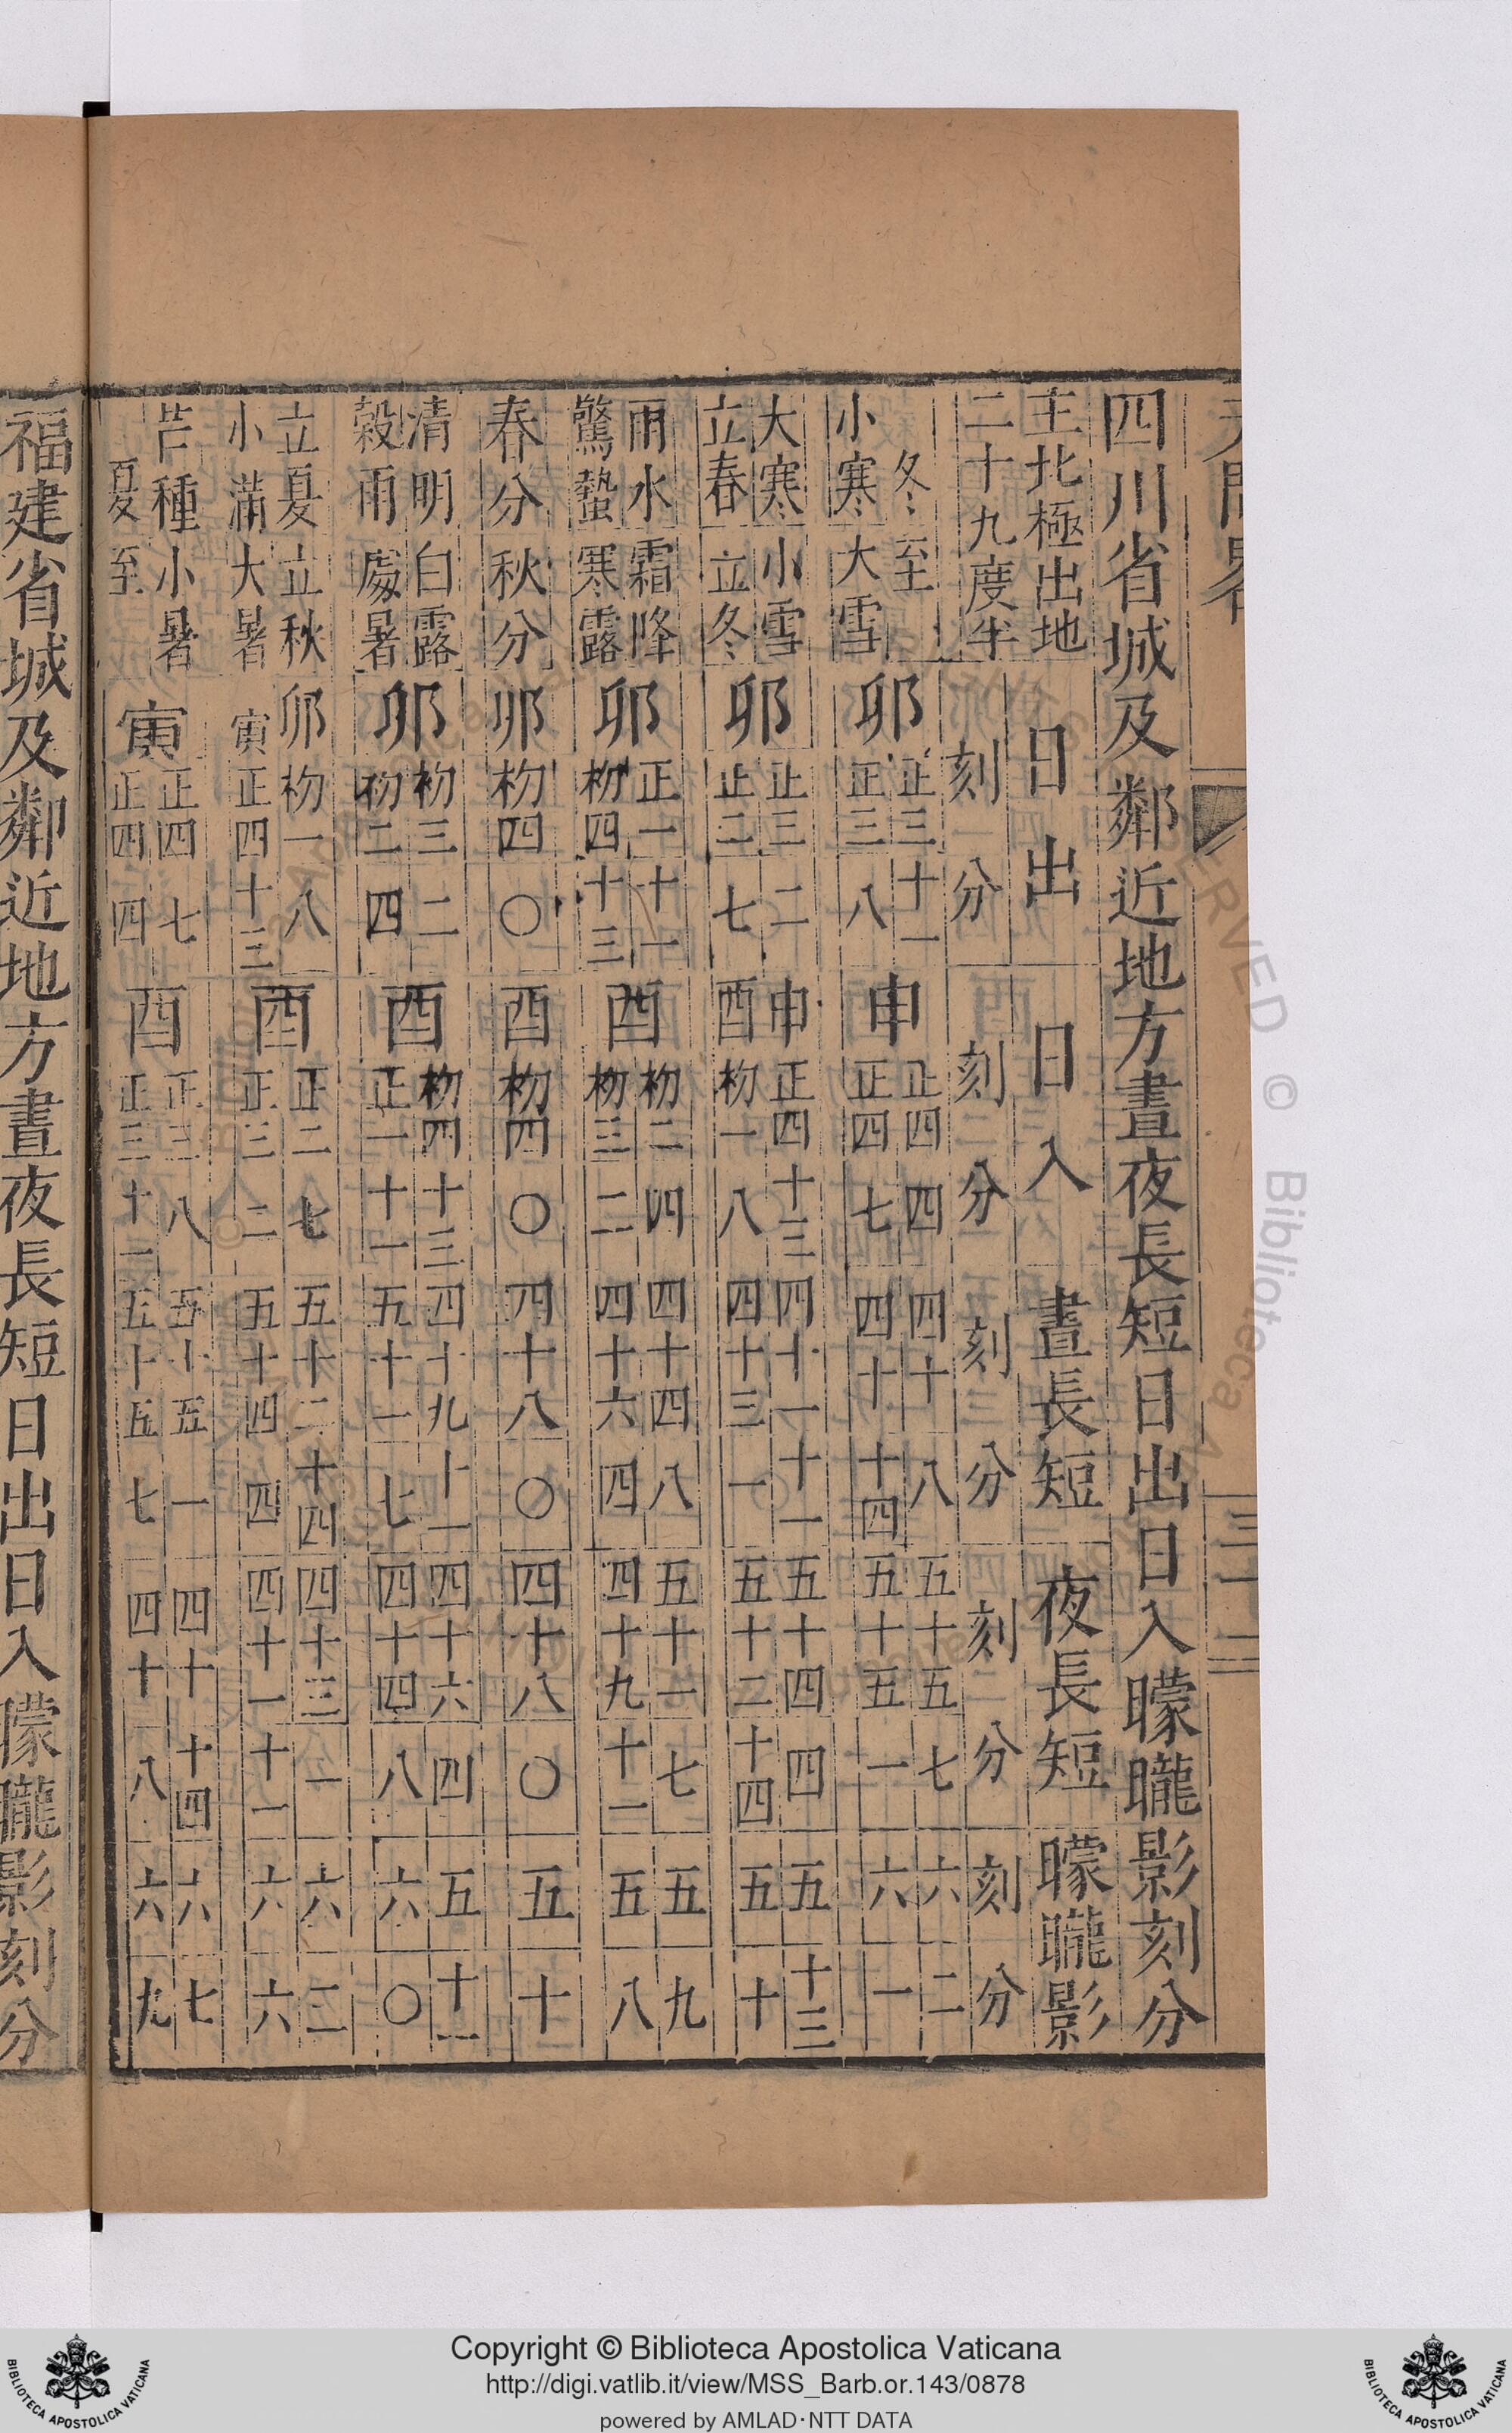 四川省城及鄰近地方晝夜長短日出日入曚曨影刻分
主北極出地 日出 日入 晝長短 夜長短 曚曨影
二十九度半 刻 分 刻 分 刻 分 刻 分 刻 分
冬至 卯 正三 十一 申 正四 四 四十 八 五十五 七 六 二
小寒 大雪 正三 八 正四 七 四十 十四 五十五 一 六 一
大寒 小雪 卯 正三 二 申 正四 十三 四十一 十一 五十四 四 五 十三
立春 立冬 正二 七 酉 初一 八 四十三 一 五十二 十四 五 十
雨水 霜降 卯 正一 十一 酉 初二 四 四十四 八 五十一 七 五 九
驚蟄 寒露 初四 十三 初三 二 四十六 四 四十九 十一 五 八
春分 秋分 卯 初四 〇 酉 初四 〇 四十八 〇 四十八 〇 五 十
清明 白露 卯 初三 二 酉 初四 十三 四十九 十一 四十六 四 五 十一
穀雨 處暑 初二 四 正一 十一 五十一 七 四十四 八 六 〇
立夏 立秋 卯 初一 八 酉 正二 七 五十二 十四 四十三 一 六 三
小滿 大暑 寅 正四 十三 正三 二 五十四 四 四十一 十一 六 六
芒種 小暑 寅 正四 七 酉 正三 八 五十五 一 四十 十四 六 七
夏至 正四 四 正三 十一 五十五 七 四十 八 六 九
福建省城及鄰近地方晝夜長短日出日入曚曨影刻分
RVED © Biblioteca
Copyright © Biblioteca Apostolica Vaticana
http://digi.vatlib.it/view/MSS_Barb.or.143/0878
powered by AMLAD·NTT DATA
BIBLIOTECA APOSTOLICA VATICANA
BIBLIOTECA APOSTOLICA VATICANA